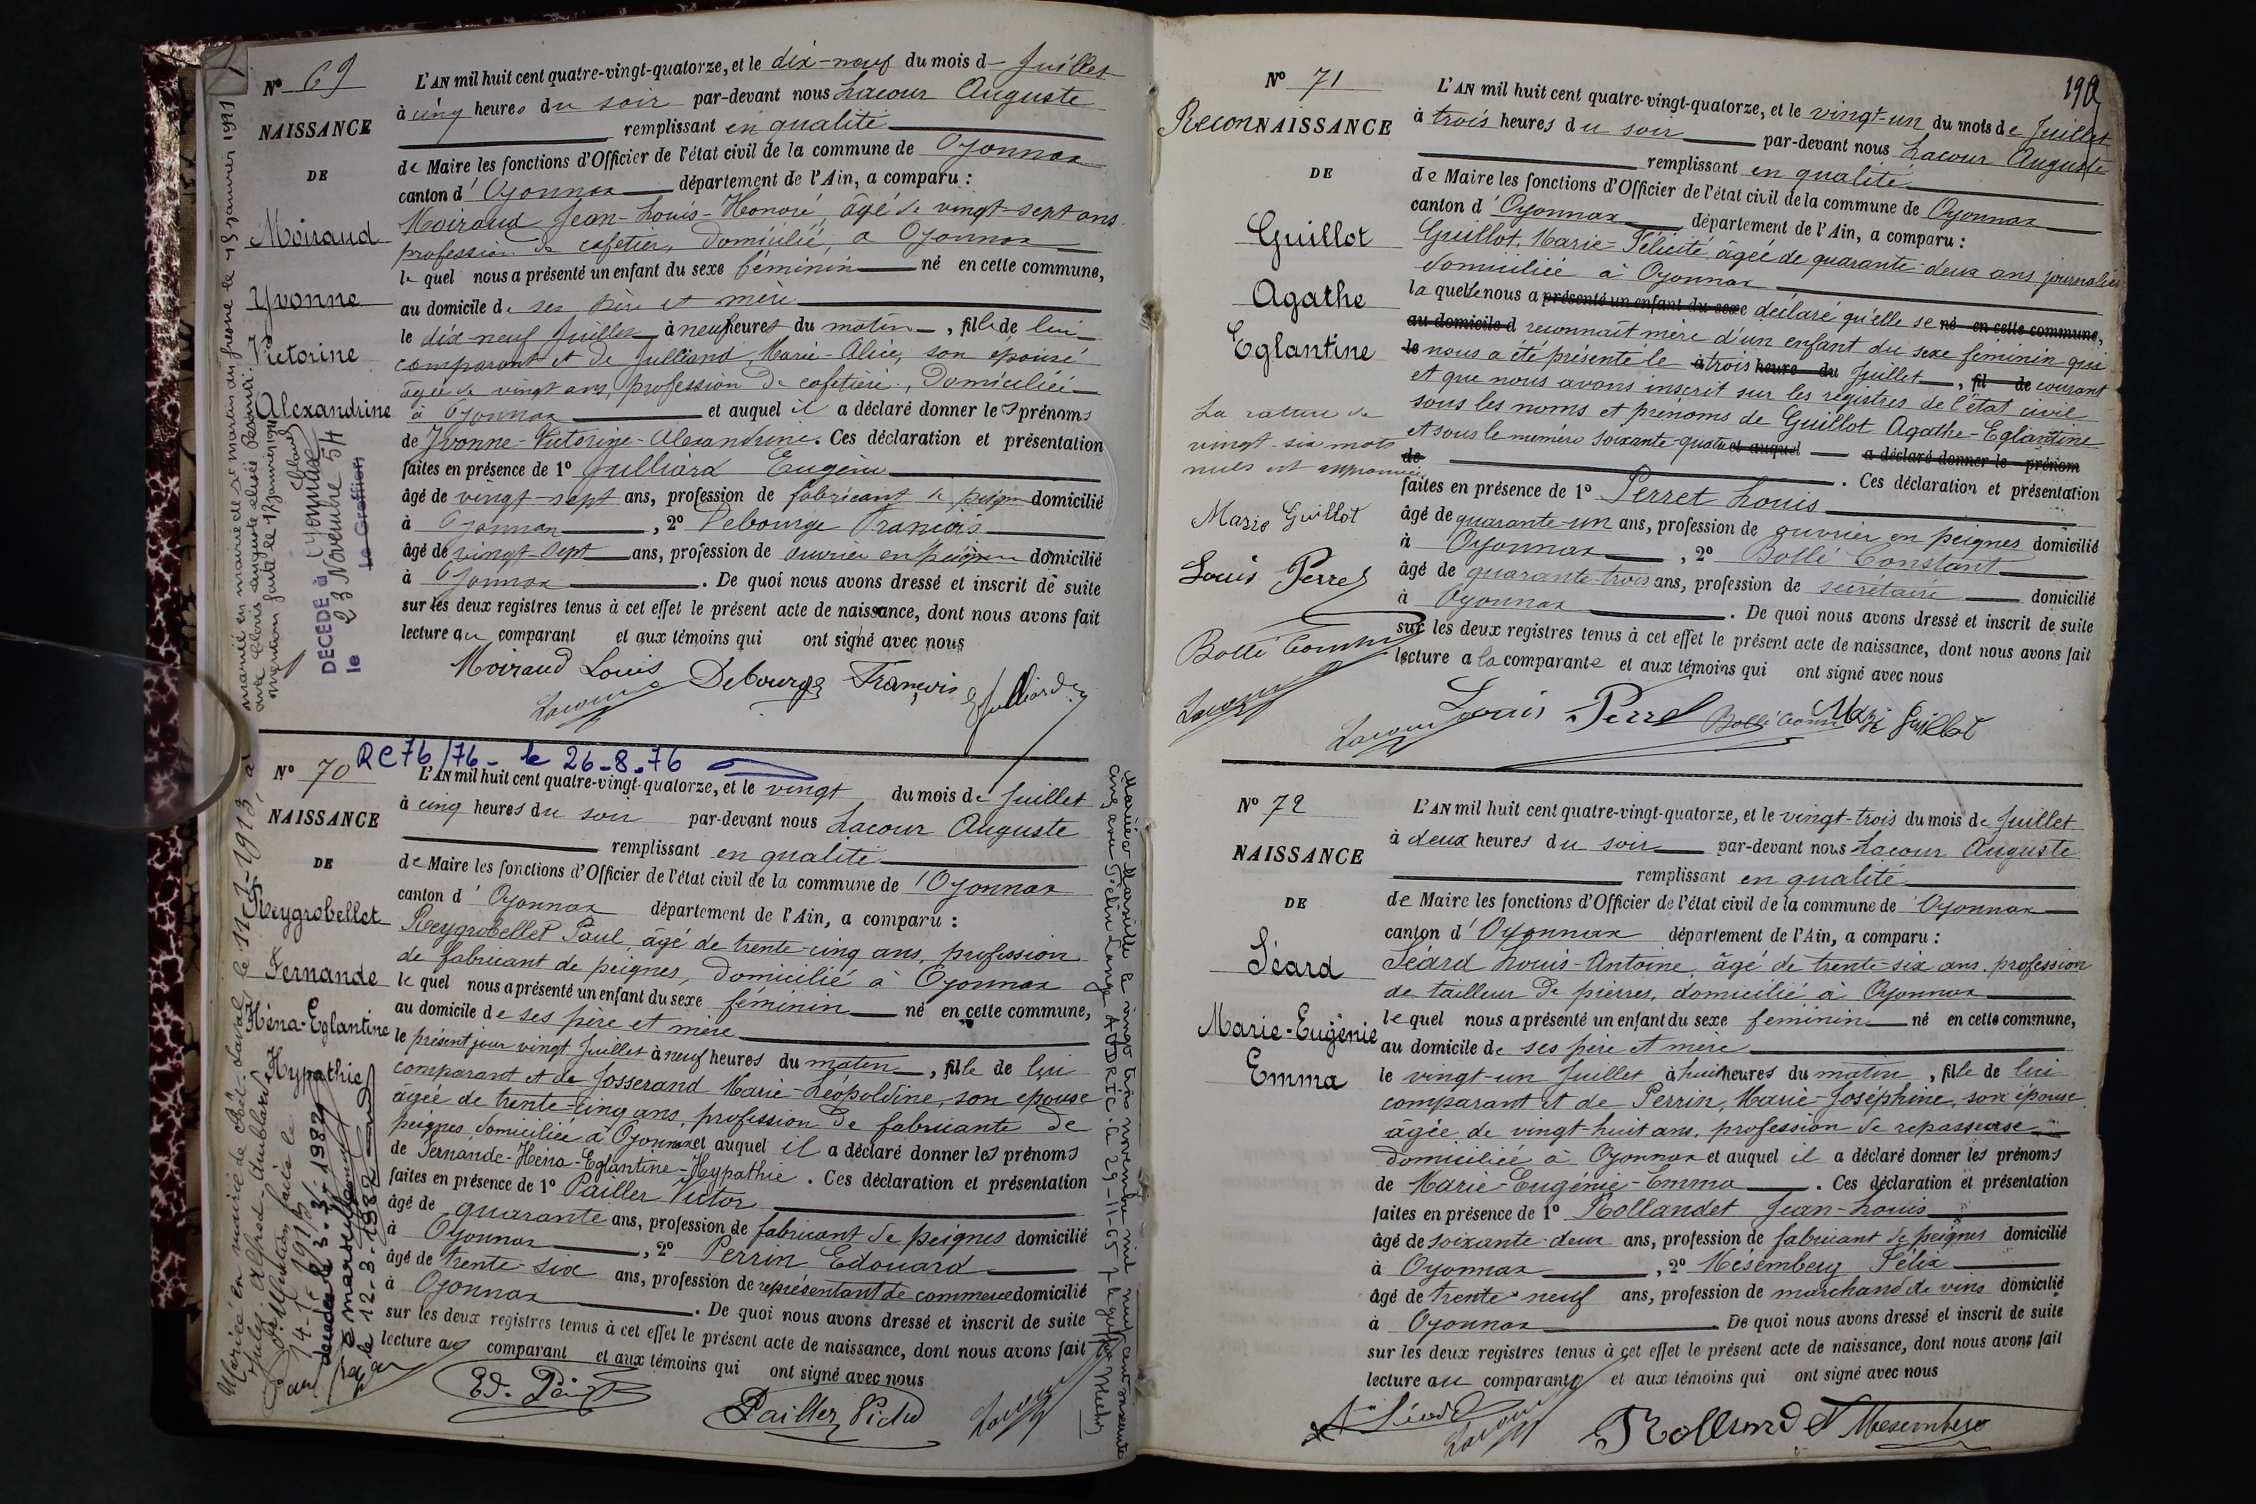 Nº 69
NAISSANCE
DE
Moiraud
Yvonne
Victorine
Alexandrine
L'AN mil huit cent quatre-vingt-quatorze, et le dix-neuf du mois d Juillet
à cinq heures du soir par-devant nous Lacour Auguste
remplissant en qualité
de Maire les fonctions d'Officier de l'état civil de la commune de Oyonnax
canton d'Oyonnax département de l'Ain, a comparu :
Moiraud Jean-Louis-Honoré, âgé de vingt-sept ans
profession de cafetier, domicilié, à Oyonnax
le quel nous a présenté un enfant du sexe féminin né en cette commune,
au domicile de ses père et mère
le dix neuf Juillet à neuf heures du matin, fille de lui
comparant et de Julliard, Marie-Alice, son épouse
âgée de vingt ans, profession de cafetière, domiciliée
à Oyonnax et auquel il a déclaré donner les prénoms
de Yvonne-Victorine-Alexandrine. Ces déclaration et présentation
faites en présence de 1º Julliard Eugène
âgé de vingt-sept ans, profession de fabricant de peignes domicilié
à Oyonnax, 2º Debourge François
âgé de vingt-sept ans, profession de ouvrier en peignes domicilié
à Oyonnax. De quoi nous avons dressé et inscrit de suite
sur les deux registres tenus à cet effet le présent acte de naissance, dont nous avons fait
lecture au comparant et aux témoins qui ont signé avec nous
Moiraud Louis Debourge François E Julliard
Lacour
DÉCÉDÉ à Oyonnax
le 23 Novembre 54
Le Greffier,
RC 76/76 - le 26-8-76
Nº 70
NAISSANCE
DE
Reygrobellet
Fernande
Héna-Eglantine
Hypathie
L'AN mil huit cent quatre-vingt-quatorze, et le vingt du mois de Juillet
à cinq heures du soir par-devant nous Lacour Auguste
remplissant en qualité
de Maire les fonctions d'Officier de l'état civil de la commune de Oyonnax
canton d'Oyonnax département de l'Ain, a comparu :
Reygrobellet Paul, âgé de trente-cinq ans, profession
de fabricant de peignes, domicilié à Oyonnax
le quel nous a présenté un enfant du sexe féminin né en cette commune,
au domicile de ses père et mère
le présent jour vingt Juillet à neuf heures du matin, fille de lui
comparant et de Josserand Marie-Léopoldine, son épouse
âgée de trente-cinq ans, profession de fabricante de
peignes domiciliée à Oyonnax et auquel il a déclaré donner les prénoms
de Fernande-Héna-Eglantine-Hypathie. Ces déclaration et présentation
faites en présence de 1º Pailler Victor
âgé de quarante ans, profession de fabricant de peignes domicilié
à Oyonnax, 2º Perrin Edouard
âgé de trente-six ans, profession de représentant de commerce domicilié
à Oyonnax. De quoi nous avons dressé et inscrit de suite
sur les deux registres tenus à cet effet le présent acte de naissance, dont nous avons fait
lecture au comparant et aux témoins qui ont signé avec nous
Ed. Perrin Pailler Victor Lacour
décédée le 3.3.1982
à Marseille
le 12-3-1982
Nº 71
ReconNAISSANCE
DE
Guillot
Agathe
Eglantine
La rature de
vingt-six mots
nuls est approuvée
Marie Guillot
Louis Perret
Bollé Constant
Lacour
190
L'AN mil huit cent quatre-vingt-quatorze, et le vingt-un du mois de Juillet
à trois heures du soir par-devant nous Lacour Auguste
remplissant en qualité
de Maire les fonctions d'Officier de l'état civil de la commune de Oyonnax
canton d'Oyonnax département de l'Ain, a comparu :
Guillot, Marie-Félicité âgée de quarante-deux ans journalière
domiciliée à Oyonnax
la quelle nous a présenté un enfant du sexe déclaré qu'elle se né en cette commune,
au domicile d reconnait mère d'un enfant du sexe féminin qui
le nous a été présenté le à trois heure du Juillet, fil de courant
et que nous avons inscrit sur les registres de l'état civil
sous les noms et prénoms de Guillot Agathe-Eglantine
et sous le numéro soixante-quatre et auquel a déclaré donner le prénom
de . Ces déclaration et présentation
faites en présence de 1º Perret Louis
âgé de quarante-un ans, profession de ouvrier en peignes domicilié
à Oyonnax, 2º Bollé Constant
âgé de quarante-trois ans, profession de secrétaire domicilié
à Oyonnax. De quoi nous avons dressé et inscrit de suite
sur les deux registres tenus à cet effet le présent acte de naissance, dont nous avons fait
lecture a la comparante et aux témoins qui ont signé avec nous
Lacour Louis Perret Bollé Const Marie Guillot
Nº 72
NAISSANCE
DE
Séard
Marie-Eugénie
Emma
L'AN mil huit cent quatre-vingt-quatorze, et le vingt-trois du mois de Juillet
à deux heures du soir par-devant nous Lacour Auguste
remplissant en qualité
de Maire les fonctions d'Officier de l'état civil de la commune de Oyonnax
canton d'Oyonnax département de l'Ain, a comparu :
Séard Louis-Antoine, âgé de trente-six ans, profession
de tailleur de pierres, domicilié à Oyonnax
le quel nous a présenté un enfant du sexe féminin né en cette commune,
au domicile de ses père et mère
le vingt-un Juillet à huit heures du matin, fille de lui
comparant et de Perrin, Marie-Joséphine, son épouse
âgée de vingt-huit ans, profession de repasseuse
domiciliée à Oyonnax et auquel il a déclaré donner les prénoms
de Marie-Eugénie-Emma. Ces déclaration et présentation
faites en présence de 1º Rollandet Jean-Louis
âgé de soixante-deux ans, profession de fabricant de peignes domicilié
à Oyonnax, 2º Mésemberg Félix
âgé de trente-neuf ans, profession de marchand de vins domicilié
à Oyonnax. De quoi nous avons dressé et inscrit de suite
sur les deux registres tenus à cet effet le présent acte de naissance, dont nous avons fait
lecture au comparant et aux témoins qui ont signé avec nous
Séard Lacour Rolland et Mesemberg